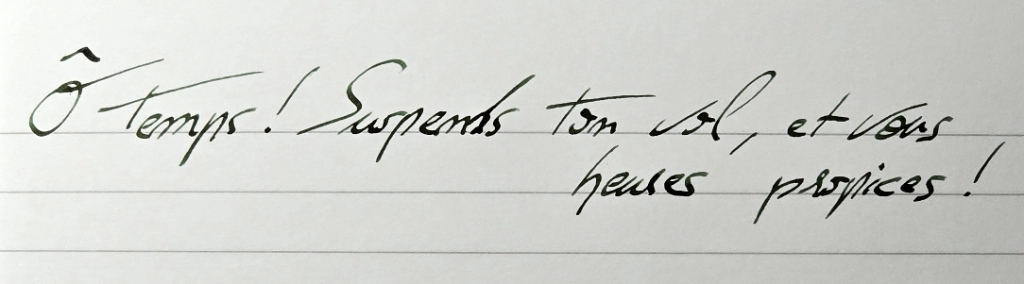 Ô temps ! Suspends ton vol, et vous
heures propices !